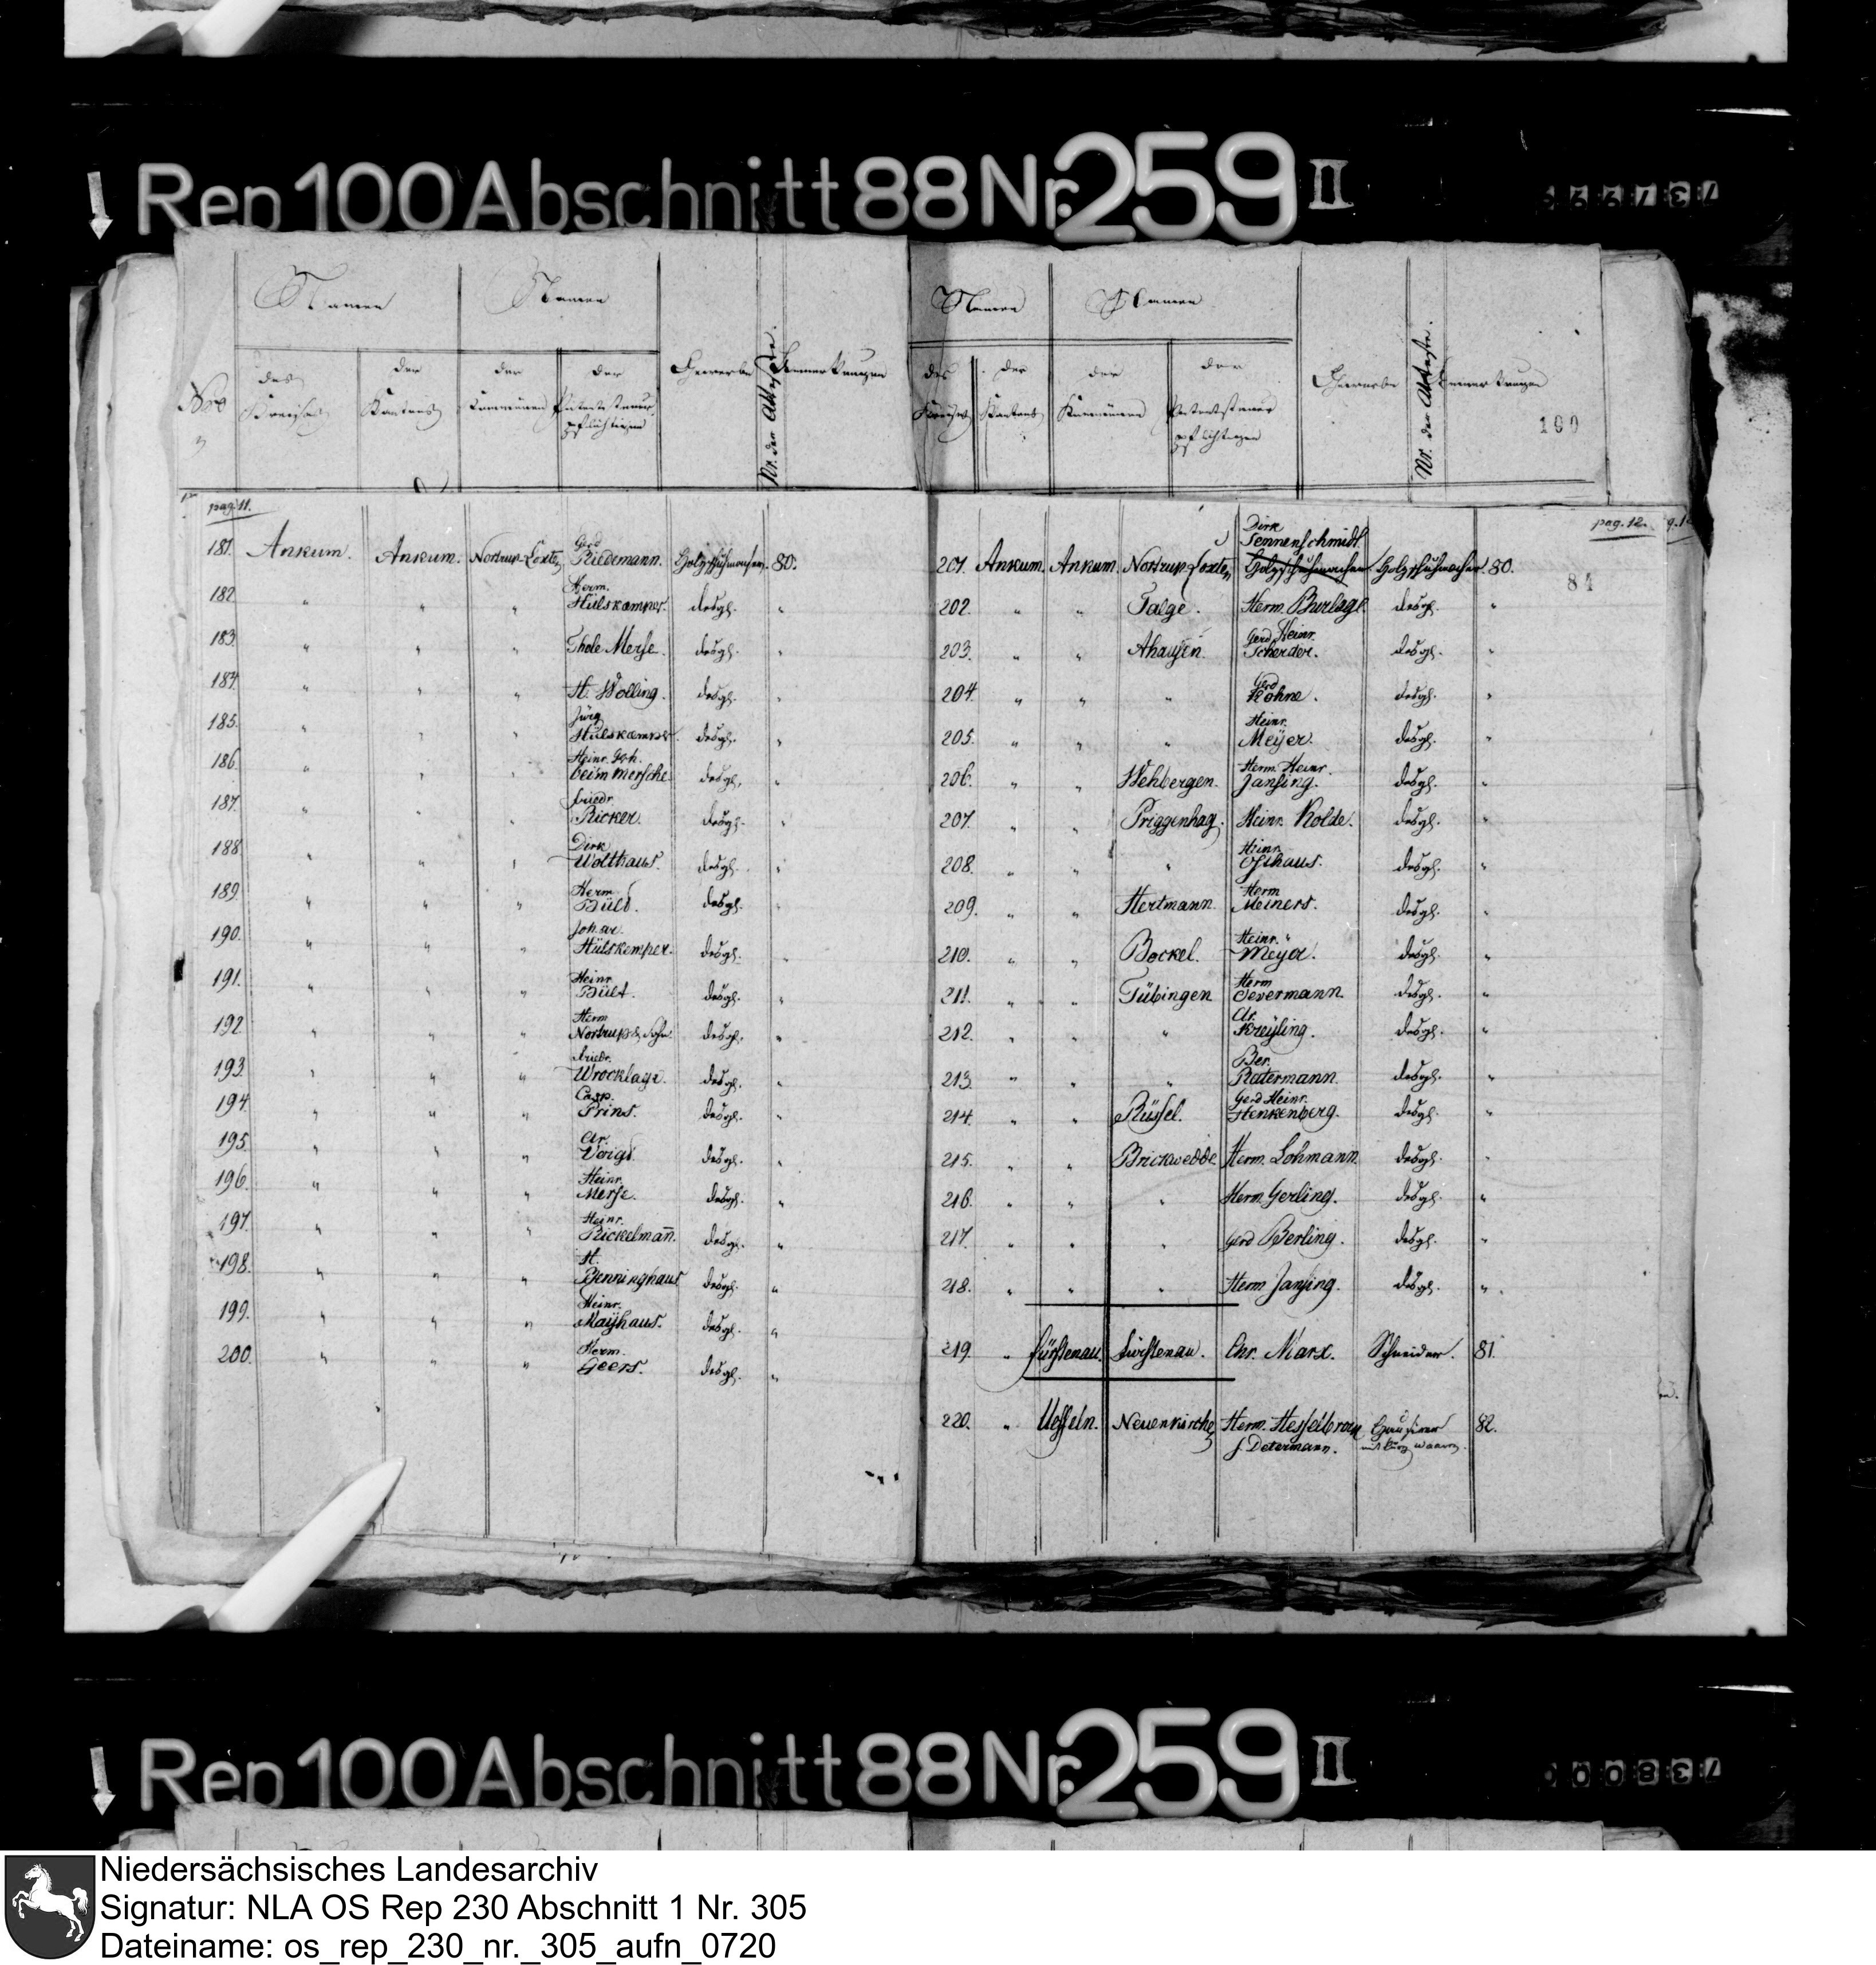 Rep 100 Abschnitt 88 Nr. 259 II
Namen Namen
Nro des Kreises der Kantons der Communen der Patentsteuer pflichtigen Gewerbe Nr. der Atteste. Bemerkungen
pag. 11.
181. Ankum. Ankum. Nortrup-Loxten Gerd Riedemann. Holzschuhmacher. 80.
182 " " " Herm. Hülskamper. desgl. "
183. " " " Thole Merse. desgl. "
184. " " " H. Wolling. desgl. "
185. " " " Jürg Hülskamper. desgl. "
186. " " " Heinr. Joh. beim Mersche desgl. "
187. " " " friedr. Ricker. desgl. "
188. " " " Dirk Wolthaus. desgl. "
189. " " " Herm Bült. desgl. "
190. " " " Hülskemper. desgl. "
191. " " " Heinr. Bült. desgl. "
192 " " " Herm Nortrups Sohn desgl. "
193. " " " friedr. Wrocklage. desgl. "
194. " " " Casp. Prins. desgl. "
195. " " " Ar. Voigt. desgl. "
196. " " " Heinr. Merse. desgl. "
197. " " " Heinr. Rickelmañ. desgl. "
198. " " " H. Benninghaus desgl. "
199. " " " Heinr. Mayhaus. desgl. "
200. " " " Herm. Geers. desgl. "
Namen Namen
des Kreises der Kantons der Kommunen der Patentsteuer pflichtigen Gewerbe Nr. der Atteste. Bemerkungen
100
pag. 12.
84
201. Ankum. Ankum. Nortrup-Loxten Dirk Tennenschmidt. Holzschuhmacher Holzschuhmacher. 80.
202. " " Talge. Herm. Burlage desgl. "
203. " " Ahausen. Gerd Heinr. Scherder. desgl. "
204 " " " Gerd Kohne. desgl. "
205. " " " Heinr. Meÿer. desgl. "
206. " " Wehbergen. Herm. Heinr. Jansing. desgl. "
207. " " Priggenhag. Heinr. Kolde. desgl. "
208. " " " Heinr. Osthaus. desgl. "
209. " " Hertmann. Herm Meiners. desgl. "
210. " " Bockel. Heinr. Meyer. desgl. "
211. " " Tübingen Herm Severmann. desgl. "
212. " " " Ar. Kreÿling. desgl. "
213. " " " Ber. Ratermann. desgl. "
214. " " Rüssel. Gerd Heinr. Henkenberg. desgl. "
215. " " Brickwedde Herm. Lohmann. desgl. "
216. " " " Herm. Gerling. desgl. "
217. " " " Gerd Berling. desgl. "
218. " " " Herm. Jansing. desgl. "
219. " fürstenau. fürstenau. Chr. Marx. Schneider. 81.
220. " Ueffeln. Neuenkirchen Herm. Hesselbrock Hausirer 82.
J. Determann. mit kurz waaren.
Rep 100 Abschnitt 88 Nr. 259 II
Niedersächsisches Landesarchiv
Signatur: NLA OS Rep 230 Abschnitt 1 Nr. 305
Dateiname: os_rep_230_nr._305_aufn_0720